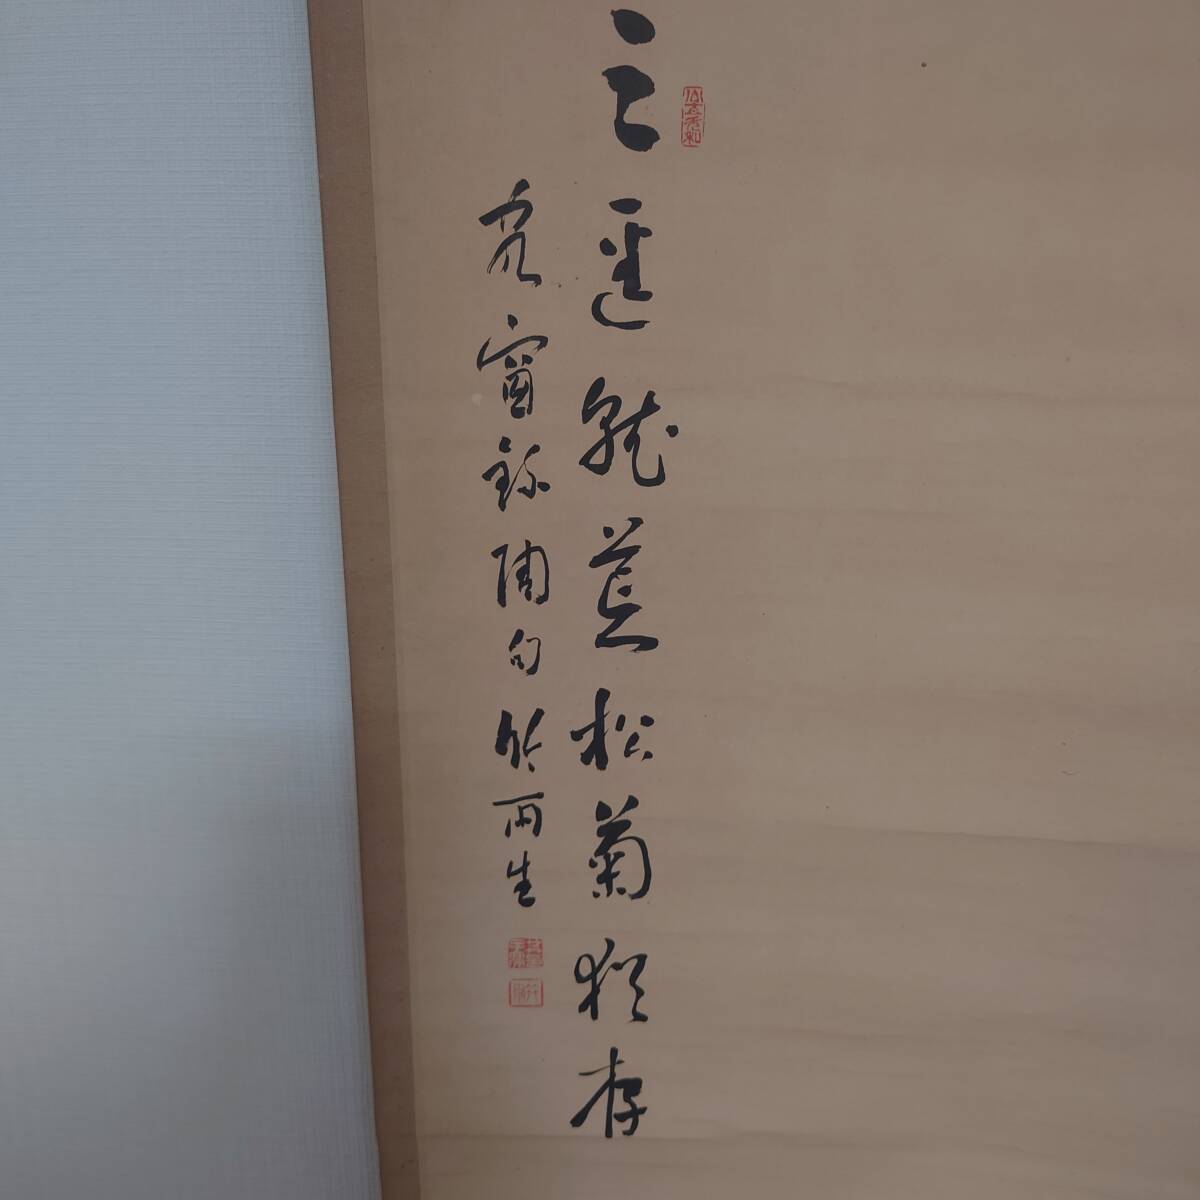 三逕就荒松菊猶存
窗録陶句竹雨生